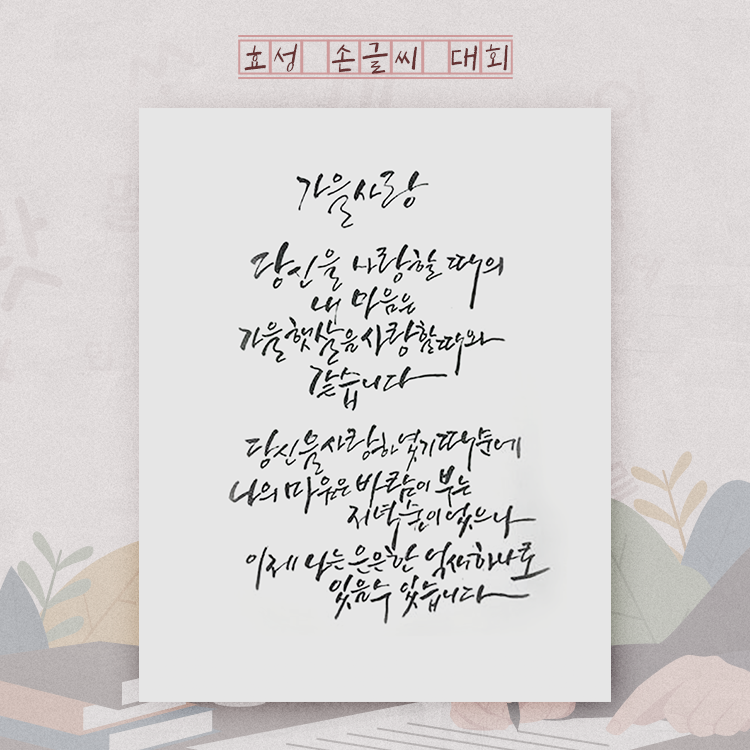 효성 손글씨 대회
가을사랑
당신을 사랑할 때의
내 마음은
가을햇살을 사랑할 때와
같습니다
당신을 사랑하였기 때문에
나의 마음은 바람이 부는
저녁숲이었으나
이제 나는 은은한 억새 하나로
있을 수 있습니다